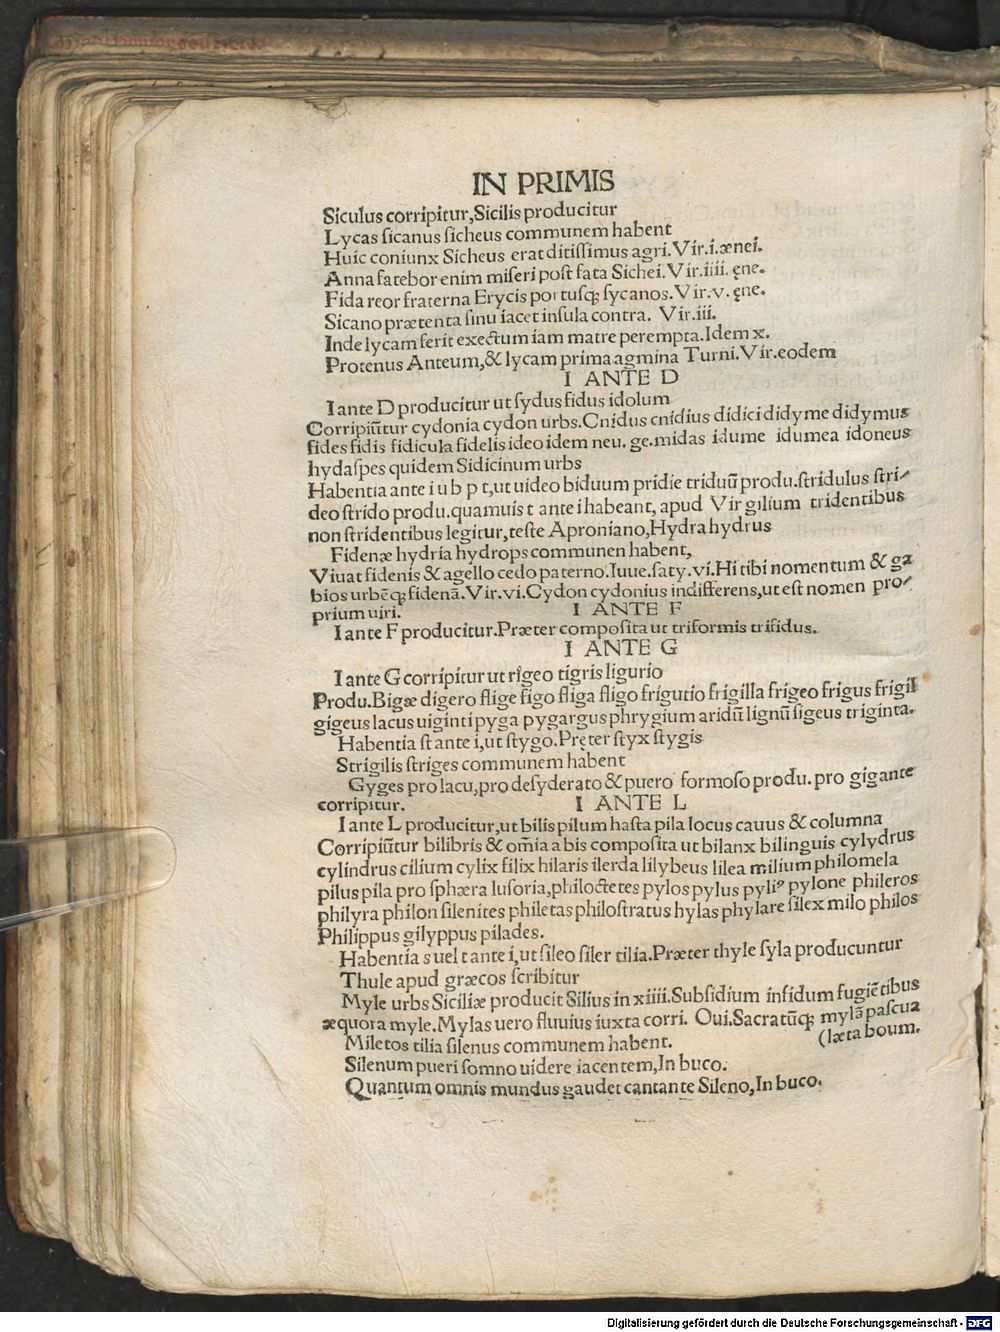 IN PRIMIS
Siculus corripitur,Sicilis producitur
Lycas sicanus sicheus communem habent
Huic coniunx Sicheus erat ditissimus agri.Vir.i.ænei.
Anna fatebor enim miseri post fata Sichei.Vir.iiii.ęne.
Fida reor fraterna Erycis portusq; sycanos.Vir.v.ęne.
Sicano prætenta sinu iacet insula contra. Vir.iii.
Inde lycam ferit exectum iam matre perempta.Idem x.
Protenus Anteum,& lycam prima agmina Turni.Vir.eodem
I ANTE D
I ante D producitur ut sydus fidus idolum
Corripiũtur cydonia cydon urbs.Cnidus cnidius didici didyme didymus
fides fidis fidicula fidelis ideo idem neu. ge.midas idume idumea idoneus
hydaspes quidem Sidicinum urbs
Habentia ante i u b p t,ut uideo biduum pridie triduũ produ.stridulus stri-
deo strido produ.quamuis t ante i habeant, apud Virgilium tridentibus
non stridentibus legitur,teste Aproniano,Hydra hydrus
Fidenæ hydria hydrops communen habent,
Viuat fidenis & agello cedo paterno.Iuue.saty.vi.Hi tibi nomentum & ga
bios urbẽq; fidenã.Vir.vi.Cydon cydonius indifferens,ut est nomen pro-
prium uiri. I ANTE F
I ante F producitur.Præter composita ut triformis trifidus.
I ANTE G
I ante G corripitur ut rigeo tigris ligurio
Produ.Bigæ digero flige figo fliga fligo frigutio frigilla frigeo frigus frigil
gigeus lacus uiginti pyga pygargus phrygium aridũ lignũ sigeus triginta.
Habentia st ante i,ut stygo.Pręter styx stygis
Strigilis striges communem habent
Gyges pro lacu,pro desyderato & puero formoso produ. pro gigante
corripitur. I ANTE L
I ante L producitur,ut bilis pilum hasta pila locus cauus & columna
Corripiũtur bilibris & om̃ia a bis composita ut bilanx bilinguis cylydrus
cylindrus cilium cylix filix hilaris ilerda lilybeus lilea milium philomela
pilus pila pro sphæra lusoria,philoctetes pylos pylus pyliꝰ pylone phileros
philyra philon silenites philetas philostratus hylas phylare silex milo philos
Philippus gilyppus pilades.
Habentia s uel t ante i,ut sileo siler tilia.Præter thyle syla producuntur
Thule apud græcos scribitur
Myle urbs Siciliæ producit Silius in xiiii.Subsidium infidum fugiẽtibus
æquora myle.Mylas uero fluuius iuxta corri. Oui.Sacratũq; mylã pascua
Miletos tilia silenus communem habent. (læta boum.
Silenum pueri somno uidere iacentem,In buco.
Quantum omnis mundus gaudet cantante Sileno,In buco.
Digitalisierung gefördert durch die Deutsche Forschungsgemeinschaft - DFG